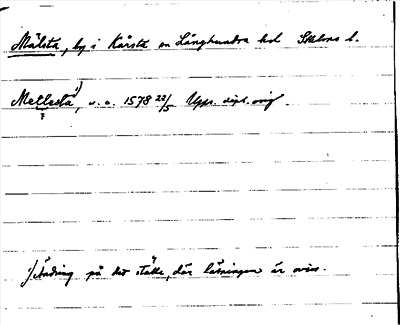 Mälsta, by i Kårsta sn Långhundra hd Sthlms l.
Mellesta¹⁾, u. o. 1578 22/5 Upps. dipl. orig.
?
¹⁾ Ändring på det ställe, där läsningen är oviss.